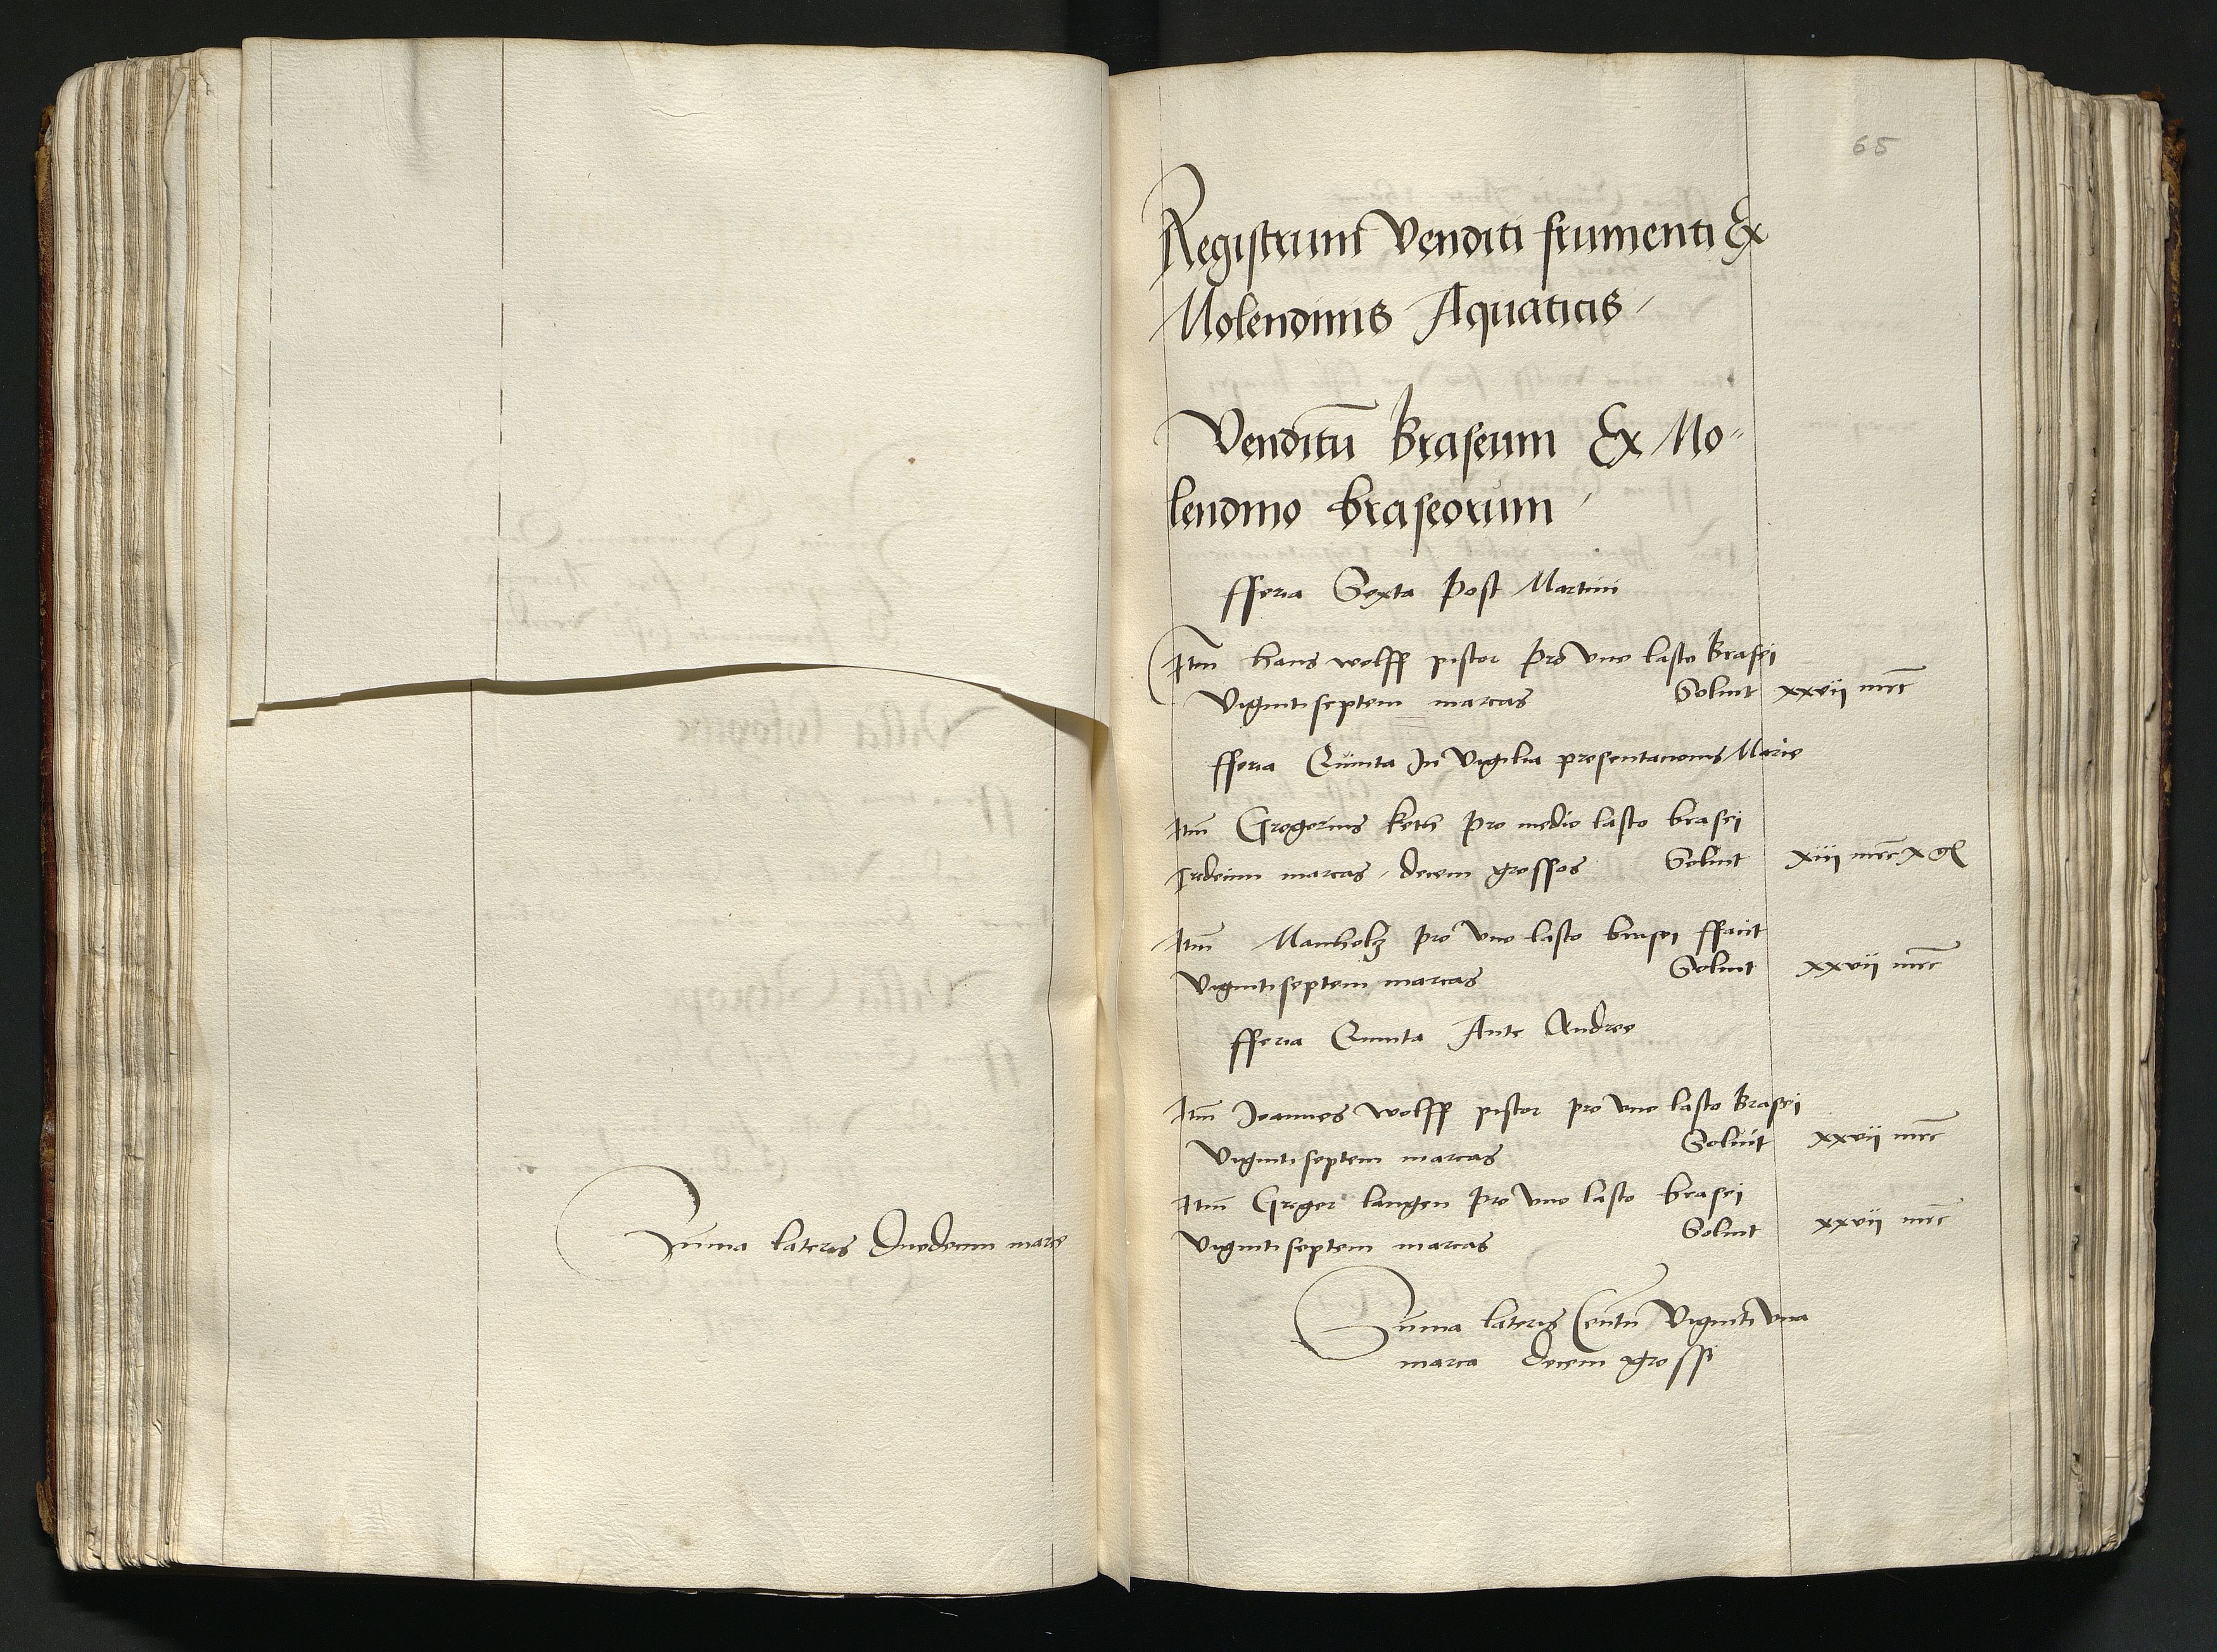 Suma lateris Duodecim marce
65
Registrum Venditi frumenti Ex
Molendinis Aquaticis
Venditu Braseum Ex Mo=
lendino braseorum
fferia Sexta Post Martini
Itm hans wolff pistor pro vno lasto Brasei
viginti septem marcas Soluit xxvii mrc
fferia Quinta In vigilia presentationis Marie
Itm Gregorius keth pro medio lasto brasei
tredecim marcas decem grossos Soluit xiii mrc x gl
Itm Manholz pro vno lasto brasei ffacit
viginti septem marcas Soluit xxvii mrc
fferia Quinta Ante Andree
Itm Joannes wolff pistor pro vno lasto Brasei
viginti septem marcas Soluit xxvii mrc
Itm Greger langen pro vno lasto brasei
viginti septem marcas Soluit xxvii mrc
Suma lateris Centu Viginti vna
marca decem grossi